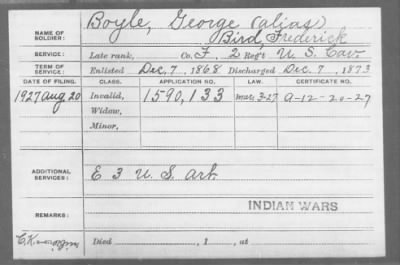 NAME OF SOLDIER: Boyle, George (alias)
Bird, Frederick
SERVICE: Late rank, Co. F, 2 Reg't U S Cav.
TERM OF SERVICE: Enlisted Dec. 7, 1868 Discharged Dec. 7, 1873
DATE OF FILING. CLASS. APPLICATION NO. LAW. CERTIFICATE NO.
1927 Aug 20 Invalid, 1590,133 Mar. 3-27 A-12-20-27
Widow,
Minor,
ADDITIONAL SERVICES: E 3 U. S. Art.
REMARKS: INDIAN WARS
Died , 1 , at